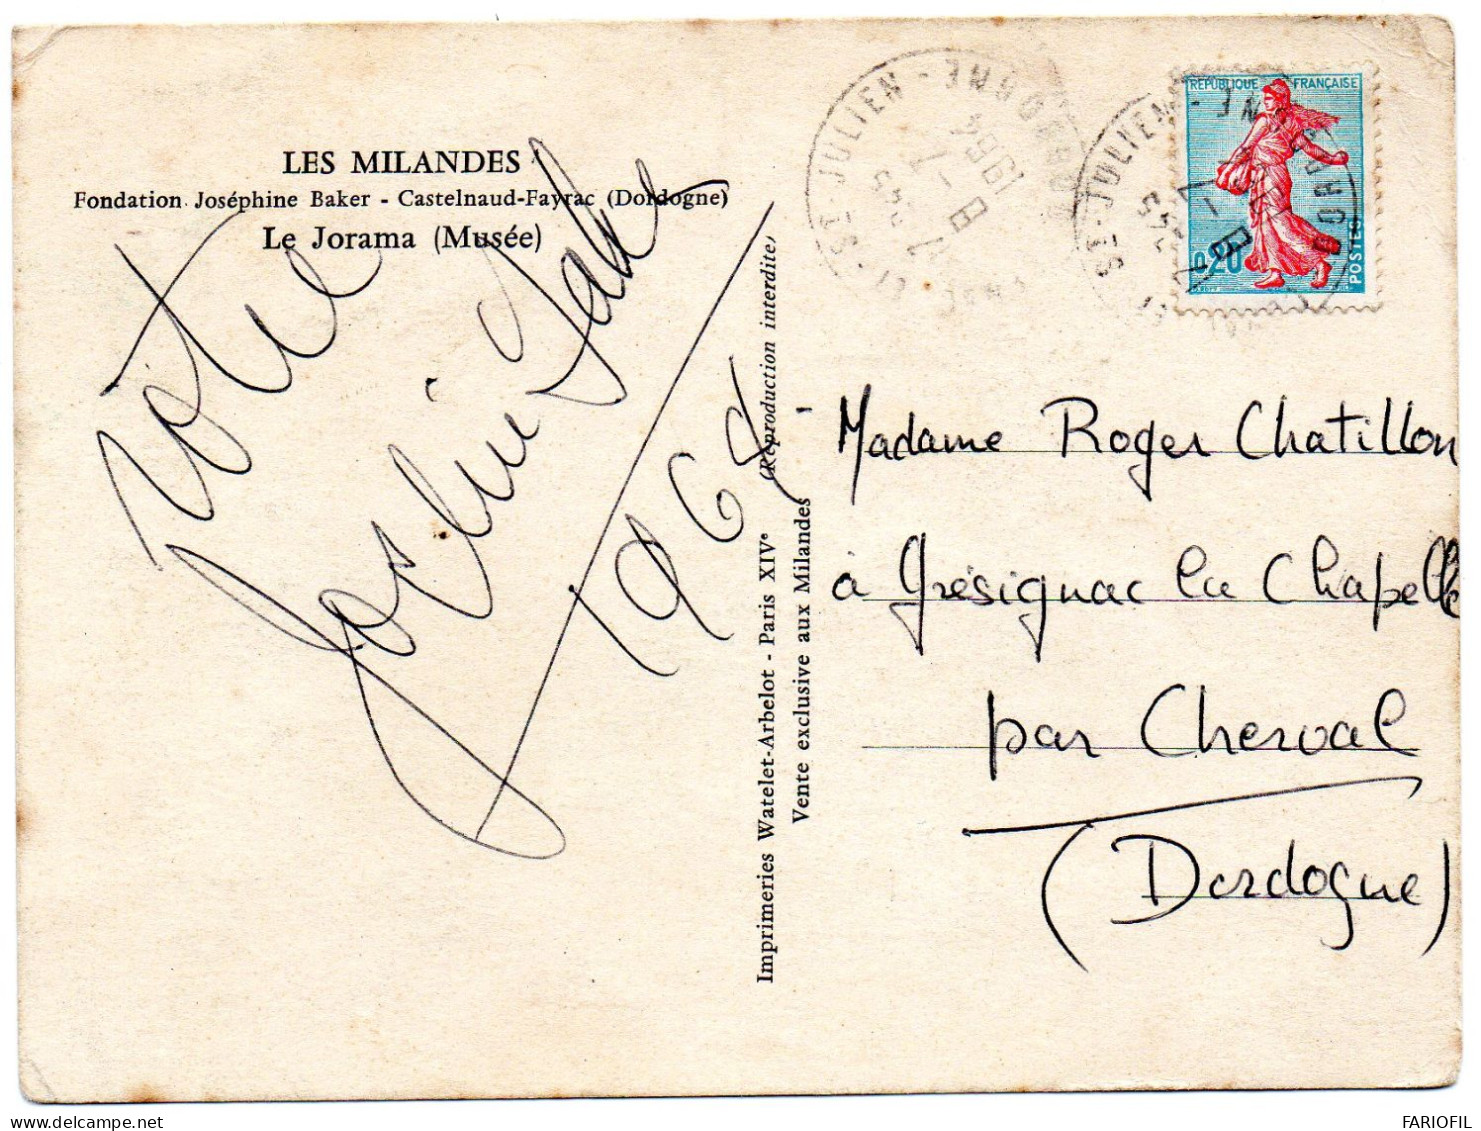 LES MILANDES
Fondation Joséphine Baker - Castelnaud-Fayrac (Dordogne)
Le Jorama (Musée)
Votre
Joséphine Baker
1964
Imprimeries Watelet-Arbelot - Paris XIVe (Reproduction interdite)
Vente exclusive aux Milandes
ST-JULIEN -
1964
RÉPUBLIQUE FRANÇAISE
0,20
POSTES
ST-JULIEN -
Madame Roger Chatillon
à Grésignac la Chapelle
par Cherval
(Dordogne)
FARIOFIL